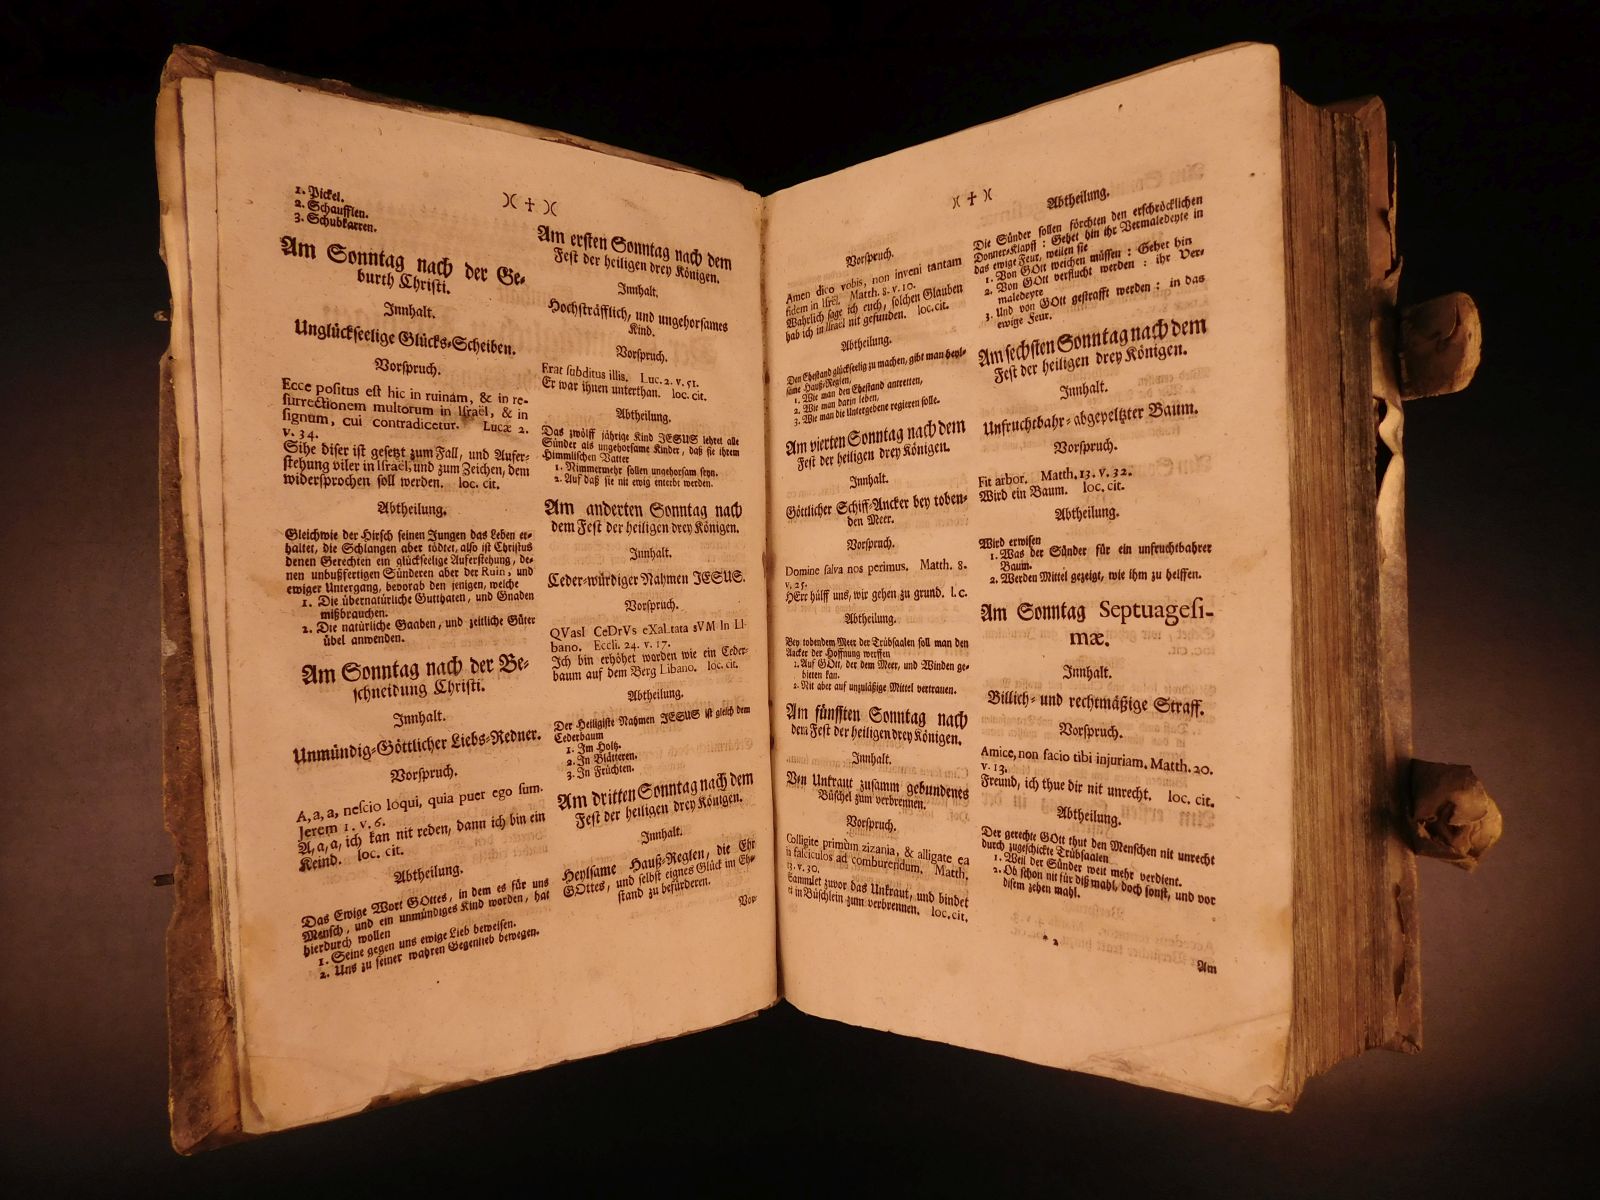 )( ✝ )(
1. Pickel.
2. Schaufflen.
3. Schubkarren.
Am Sonntag nach der Ge-
burth Christi.
Innhalt.
Unglückseelige Glücks-Scheiben.
Vorspruch.
Ecce positus est hic in ruinam, & in re-
surrectionem multorum in Israël, & in
signum, cui contradicetur. Lucæ 2.
v. 34.
Sihe diser ist gesetzt zum Fall, und Aufer-
stehung viler in Israël, und zum Zeichen, dem
widersprochen soll werden. loc. cit.
Abtheilung.
Gleichwie der Hirsch seinen Jungen das Leben er-
haltet, die Schlangen aber tödtet, also ist Christus
denen Gerechten ein glückseelige Auferstehung, de-
nen unbußfertigen Sünderen aber der Ruin, und
ewiger Untergang, bevorab den jenigen, welche
1. Die übernatürliche Gutthaten, und Gnaden
mißbrauchen.
2. Die natürliche Gaaben, und zeitliche Güter
übel anwenden.
Am Sonntag nach der Be-
schneidung Christi.
Innhalt.
Unmündig-Göttlicher Liebs-Redner.
Vorspruch.
A, a, a, nescio loqui, quia puer ego sum.
Jerem 1. v. 6.
A, a, a, ich kan nit reden, dann ich bin ein
Keind. loc. cit.
Abtheilung.
Das Ewige Wort GOttes, in dem es für uns
Mensch, und ein unmündiges Kind worden, hat
hierdurch wollen
1. Seine gegen uns ewige Lieb beweisen.
2. Uns zu seiner wahren Gegenlieb bewegen.
Am ersten Sonntag nach dem
Fest der heiligen drey Königen.
Innhalt.
Hochsträfflich, und ungehorsames
Kind.
Vorspruch.
Erat subditus illis. Luc. 2. v. 51.
Er war ihnen unterthan. loc. cit.
Abtheilung.
Das zwölff jährige Kind JESUS lehret alle
Sünder als ungehorsame Kinder, daß sie ihrem
Himmlischen Vatter
1. Nimmermehr sollen ungehorsam seyn.
2. Auf daß sie nit ewig enterbt werden.
Am anderten Sonntag nach
dem Fest der heiligen drey Königen.
Innhalt.
Ceder-würdiger Nahmen JESUS.
Vorspruch.
QVasI CeDrVs eXaLtata sVM In LI-
bano. Eccli. 24. v. 17.
Ich bin erhöhet worden wie ein Ceder-
baum auf dem Berg Libano. loc. cit.
Abtheilung.
Der Heiligiste Nahmen JESUS ist gleich dem
Cederbaum
1. Im Holtz.
2. In Blätteren.
3. In Früchten.
Am dritten Sonntag nach dem
Fest der heiligen drey Königen.
Innhalt.
Heylsame Hauß-Reglen, die Ehr
GOttes, und selbst eignes Glück im Ehe-
stand zu befürderen.
Vor-
)( ✝ )(
Vorspruch.
Amen dico vobis, non inveni tantam
fidem in Isrël. Matth. 8. v. 10.
Wahrlich sage ich euch, solchen Glauben
hab ich in Israel nit gefunden. loc. cit.
Abtheilung.
Den Ehestand glückseelig zu machen, gibt man heyl-
same Hauß-Reglen,
1. Wie man den Ehestand antretten,
2. Wie man darin leben,
3. Wie man die Untergebene regieren solle.
Am vierten Sonntag nach dem
Fest der heiligen drey Königen.
Innhalt.
Göttlicher Schiff-Ancker bey toben-
den Meer.
Vorspruch.
Domine salva nos perimus. Matth. 8.
v. 25.
HErr hülff uns, wir gehen zu grund. l. c.
Abtheilung.
Bey tobendem Meer der Trübsaalen soll man den
Ancker der Hoffnung werffen
1. Auf GOtt, der dem Meer, und Winden ge-
bieten kan.
2. Nit aber auf unzuläßige Mittel vertrauen.
Am fünfften Sonntag nach
dem Fest der heiligen drey Königen.
Innhalt.
Von Unkraut zusamm gebundenes
Büschel zum verbrennen.
Vorspruch.
Colligite primùm zizania, & alligate ea
in fasciculos ad comburendum, Matth.
13. v. 30.
Sammlet zuvor das Unkraut, und bindet
es in Büschlein zum verbrennen. loc. cit.
Abtheilung.
Die Sünder sollen förchten den erschröcklichen
Donner-Klapff: Gehet hin ihr Vermaledeyte in
das ewige Feur, weilen sie
1. Von GOtt weichen müssen: Gehet hin
2. Von GOtt verflucht werden: ihr Ver-
maledeyte
3. Und von GOtt gestrafft werden: in das
ewige Feur.
Am sechsten Sonntag nach dem
Fest der heiligen drey Königen.
Innhalt.
Unfruchtbahr-abgepeltzter Baum.
Vorspruch.
Fit arbor. Matth. 13. v. 32.
Wird ein Baum. loc. cit.
Abtheilung.
Wird erwisen
1. Was der Sünder für ein unfruchtbahrer
Baum.
2. Werden Mittel gezeigt, wie ihm zu helffen.
Am Sonntag Septuagesi-
mæ.
Innhalt.
Billich- und rechtmäßige Straff.
Vorspruch.
Amice, non facio tibi injuriam. Matth. 20.
v. 13.
Freund, ich thue dir nit unrecht. loc. cit.
Abtheilung.
Der gerechte GOtt thut den Menschen nit unrecht
durch zugeschickte Trübsaalen
1. Weil der Sünder weit mehr verdient.
2. Ob schon nit für diß mahl, doch sonst, und vor
disem zehen mahl.
* 2
Am